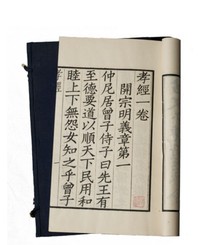 孝經一卷
開宗明義章第一
仲尼居曾子侍子曰先王有
至德要道以順天下民用和
睦上下無怨女知之乎曾子